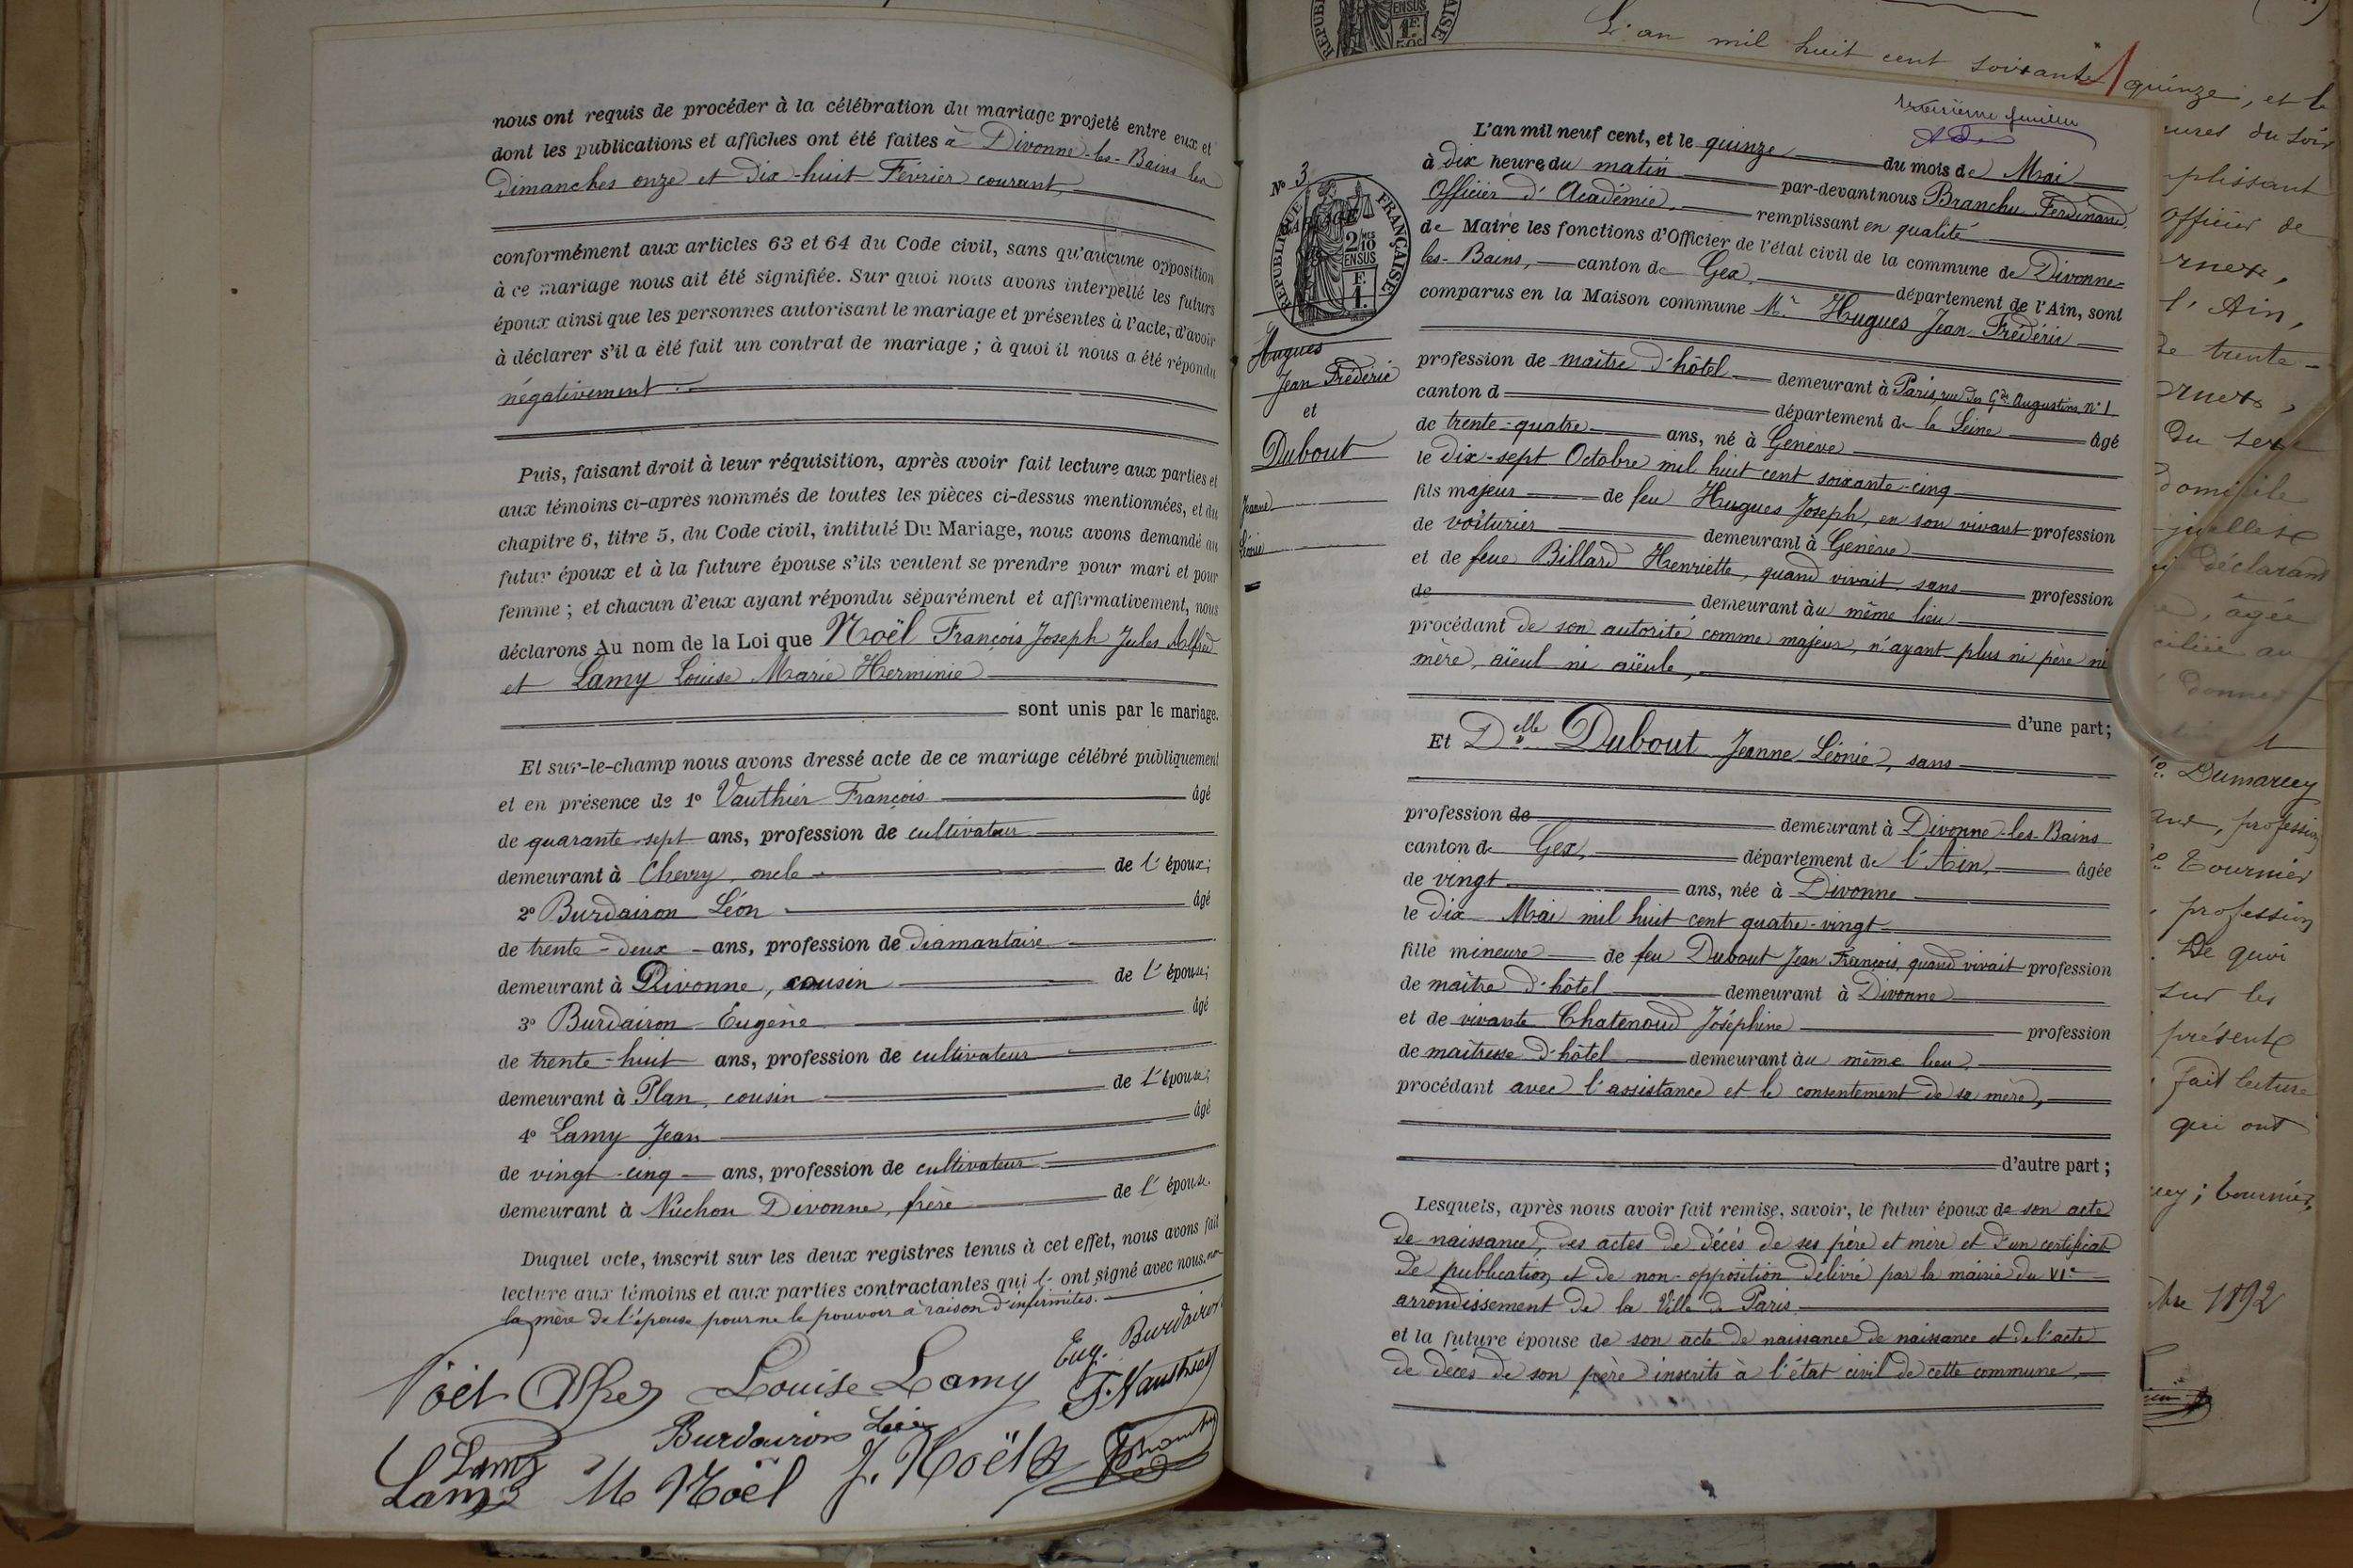 nous ont requis de procéder à la célébration du mariage projeté entre eux et
dont les publications et affiches ont été faites à Divonne-les-Bains les
Dimanches onze et dix-huit Février courant,
conformément aux articles 63 et 64 du Code civil, sans qu'aucune opposition
à ce mariage nous ait été signifiée. Sur quoi nous avons interpellé les futurs
époux ainsi que les personnes autorisant le mariage et présentes à l'acte, d'avoir
à déclarer s'il a été fait un contrat de mariage ; à quoi il nous a été répondu
négativement
Puis, faisant droit à leur réquisition, après avoir fait lecture aux parties et
aux témoins ci-après nommés de toutes les pièces ci-dessus mentionnées, et du
chapitre 6, titre 5, du Code civil, intitulé Du Mariage, nous avons demandé au
futur époux et à la future épouse s'ils veulent se prendre pour mari et pour
femme ; et chacun d'eux ayant répondu séparément et affirmativement, nous
déclarons Au nom de la Loi que Noël François Joseph Jules Alfred
et Lamy Louise Marie Herminie
sont unis par le mariage.
Et sur-le-champ nous avons dressé acte de ce mariage célébré publiquement
et en présence de 1° Vauthier François âgé
de quarante-sept ans, profession de cultivateur
demeurant à Chevry, oncle de l'époux;
2° Burdairon Léon âgé
de trente-deux ans, profession de diamantaire
demeurant à Divonne, cousin de l'épouse;
3° Burdairon Eugène âgé
de trente-huit ans, profession de cultivateur
demeurant à Plan, cousin de l'épouse;
4° Lamy Jean âgé
de vingt-cinq ans, profession de cultivateur
demeurant à Divonne, frère de l'épouse.
Duquel acte, inscrit sur les deux registres tenus à cet effet, nous avons fait
lecture aux témoins et aux parties contractantes qui l' ont signé avec nous, non
la mère de l'épouse pour ne le pouvoir à raison d'infirmités.
Eug. Burdairon
Noël Alfred Louise Lamy F. Vauthier
Burdairon Léon
Lamy
Lamy M Noël J. Noël
L'an mil huit cent soixante quinze, et le
REPUBLIQUE FRANÇAISE
L'an mil neuf cent, et le quinze du mois de Mai
à dix heures du matin par-devant nous Branchu Ferdinand
Officier d'Académie, remplissant en qualité
de Maire les fonctions d'Officier de l'état civil de la commune de Divonne-
les-Bains, canton de Gex, département de l'Ain, sont
comparus en la Maison commune Mr Hugues Jean Frédéric
N° 3
MARIAGE
REPUBLIQUE FRANÇAISE
2/10 EN SUS
1 F.
Hugues
Jean Frédéric
et
Dubout
Jeanne
Léonie
profession de maître d'hôtel demeurant à Paris, rue des Gds Augustins, n° 1
canton d département de la Seine âgé
de trente-quatre ans, né à Genève
le dix-sept Octobre mil huit cent soixante-cinq
fils majeur de feu Hugues Joseph, en son vivant profession
de voiturier demeurant à Genève
et de feue Billard Henriette, quand vivait, sans profession
de demeurant au même lieu
procédant de son autorité comme majeur, n'ayant plus ni père ni
mère, aïeul ni aïeule,
d'une part;
Et Delle Dubout Jeanne Léonie, sans
profession de demeurant à Divonne-les-Bains
canton de Gex, département de l'Ain, âgée
de vingt ans, née à Divonne
le dix Mai mil huit cent quatre-vingt
fille mineure de feu Dubout Jean François, quand vivait profession
de maître d'hôtel demeurant à Divonne
et de vivante Chatenoud Joséphine profession
de maîtresse d'hôtel demeurant au même lieu
procédant avec l'assistance et le consentement de sa mère,
d'autre part ;
Lesquels, après nous avoir fait remise, savoir, le futur époux de son acte
de naissance, des actes de décès de ses père et mère et d'un certificat
de publication et de non-opposition délivré par la mairie du VIe
arrondissement de la Ville de Paris
et la future épouse de son acte de naissance de naissance et de l'acte
de décès de son père inscrits à l'état civil de cette commune,
ures du soir
plissant
officier de
l'Ain,
de trente-
du sexe
domicile
déclarant
âgée
donner
Dumarcey
profession
Tournier
profession
De quoi
sur les
présente
fait lecture
qui ont
Tournier,
1892